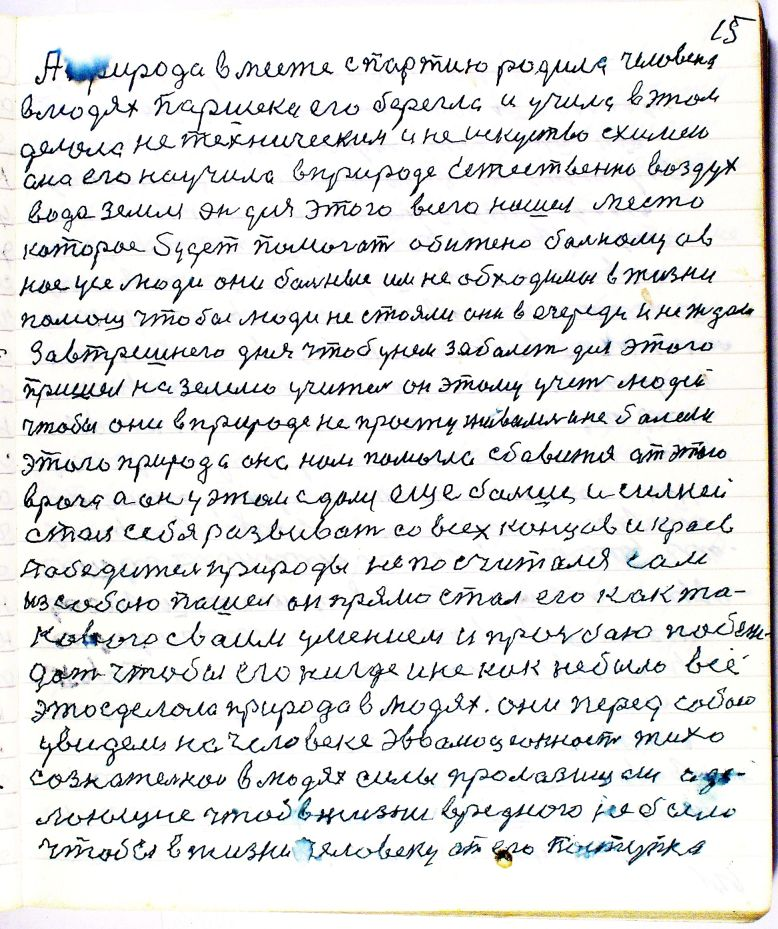 15
А природа вместе спартию родила человека
в людях Паршека его берегла и учила в этом
делола не техническим и не искуство схимею
она его научила в природе естественно воздух
вода земля он для этого всего нашел место
которое будет помогат обижено болному ов
ное усе люди они болные им не обходимы в жизни
помощ чтобы люди не стояли они в очереди и не ждали
Завтрешнего дня чтоб унем заболет для этого
пришел на землю учител он этому учет людей
чтобы они в природе не простуживалися не болели
этого природа она нам помогла сбавится от этого
врага а он у этом сдоли еще болши и силней
стал себя развиват со всех концов и краев
Победител природы не посчитался сам
из собою пашел он прямо стал его как та-
кового сваим умением и прозбаю побеж-
дат чтобы его нигде и не как небыло всё
этосделола природа в людях. они перед собою
увидели на человеке эвамоционност тихо
сознателной в людях силы
лоющие чтоб в жизни вредного не было
чтобы в жизни человеку от его поступка